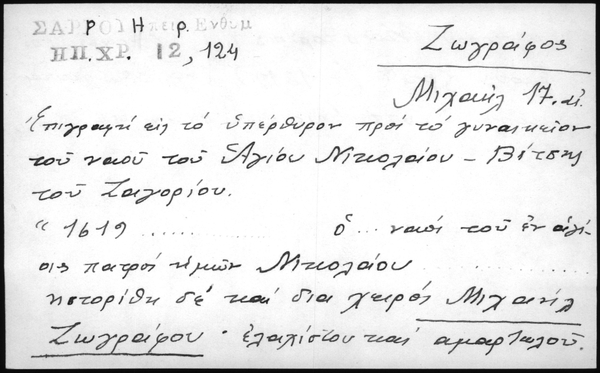 ΣΑΡΡΟΥ Ηπειρ. Ενθυμ
ΗΠ. ΧΡ. 12, 124
Ζωγράφος
Μιχαήλ 17. αἰ.
Ἐπιγραφή εἰς τό ὑπέρθυρον πρός τό γυναικεῖον
τοῦ ναοῦ τοῦ Ἁγίου Νικολαίου – Βίτσης
τοῦ Ζαγορίου.
“ 1619 .......... ὁ ... ναός τοῦ ἐν αγί-
οις πατρός ημῶν Νικολαίου ..........
ηστορίθη δέ καί δια χειρός Μιχαήλ
Ζωγράφου · ἐλαχίστου καί αμαρτωλοῦ.